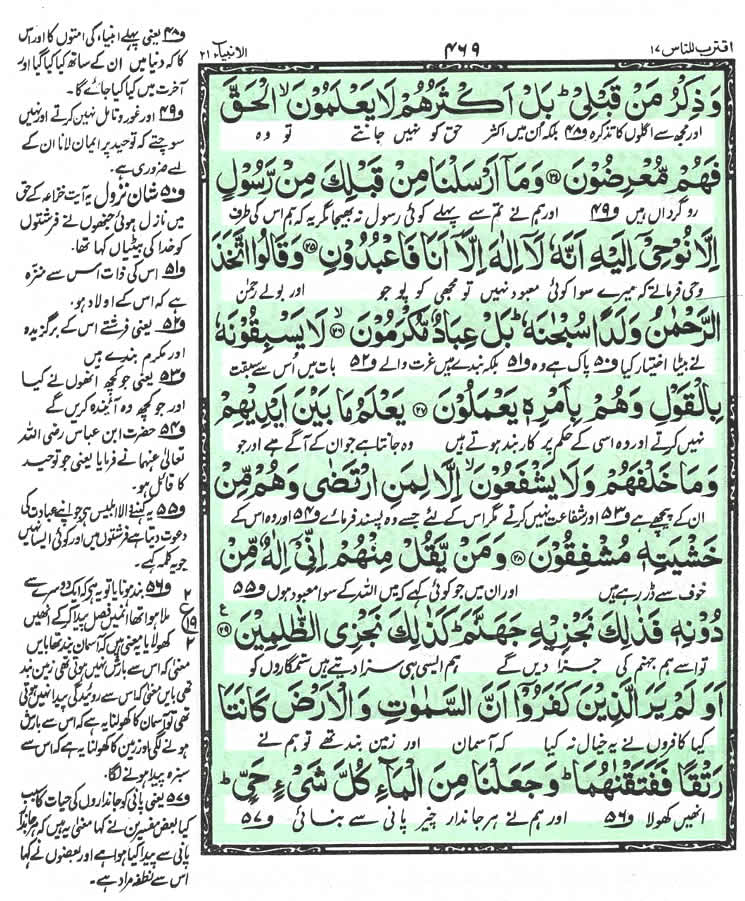 اقترب للناس ۱۷
۴۶۹
الانبیاء ۲۱
وَذِكْرُ مَنْ قَبْلِیْ ؕ بَلْ اَكْثَرُهُمْ لَا یَعْلَمُوْنَ ۙ الْحَقَّ
اور مجھ سے اگلوں کا تذکرہ و۴۸ بلکہ ان میں اکثر حق کو نہیں جانتے تو وہ
فَهُمْ مُّعْرِضُوْنَ ﴿۲۴﴾ وَمَاۤ اَرْسَلْنَا مِنْ قَبْلِكَ مِنْ رَّسُوْلٍ
رو گرداں ہیں و۴۹ اور ہم نے تم سے پہلے کوئی رسول نہ بھیجا مگر یہ کہ ہم اس کی طرف
اِلَّا نُوْحِیْۤ اِلَیْهِ اَنَّهٗ لَاۤ اِلٰهَ اِلَّاۤ اَنَا فَاعْبُدُوْنِ ﴿۲۵﴾ وَقَالُوا اتَّخَذَ
وحی فرماتے کہ میرے سوا کوئی معبود نہیں تو مجھی کو پوجو اور بولے رحمٰن
الرَّحْمٰنُ وَلَدًا سُبْحٰنَهٗ ؕ بَلْ عِبَادٌ مُّكْرَمُوْنَ ﴿۲۶﴾ۙ لَا یَسْبِقُوْنَهٗ
نے بیٹا اختیار کیا و۵۰ پاک ہے وہ و۵۱ بلکہ بندے ہیں عزت والے و۵۲ بات میں اُس سے سبقت
بِالْقَوْلِ وَهُمْ بِاَمْرِهٖ یَعْمَلُوْنَ ﴿۲۷﴾ یَعْلَمُ مَا بَیْنَ اَیْدِیْهِمْ
نہیں کرتے اور وہ اسی کے حکم پر کاربند ہوتے ہیں وہ جانتا ہے جو ان کے آگے ہے اور جو
وَمَا خَلْفَهُمْ وَلَا یَشْفَعُوْنَ ۙ اِلَّا لِمَنِ ارْتَضٰی وَهُمْ مِّنْ
ان کے پیچھے ہے و۵۳ اور شفاعت نہیں کرتے مگر اس کے لئے جسے وہ پسند فرمائے و۵۴ اور وہ اس کے
خَشْیَتِهٖ مُشْفِقُوْنَ ﴿۲۸﴾ وَمَنْ یَّقُلْ مِنْهُمْ اِنِّیْۤ اِلٰهٌ مِّنْ
خوف سے ڈر رہے ہیں اور ان میں جو کوئی کہے کہ میں اللہ کے سوا معبود ہوں و۵۵
دُوْنِهٖ فَذٰلِكَ نَجْزِیْهِ جَهَنَّمَ ؕ كَذٰلِكَ نَجْزِی الظّٰلِمِیْنَ ﴿۲۹﴾
تو اسے ہم جہنم کی جزا دیں گے ہم ایسی ہی سزا دیتے ہیں ستمگاروں کو
اَوَ لَمْ یَرَ الَّذِیْنَ كَفَرُوْۤا اَنَّ السَّمٰوٰتِ وَ الْاَرْضَ كَانَتَا
کیا کافروں نے یہ خیال نہ کیا کہ آسمان اور زمین بند تھے تو ہم نے
رَتْقًا فَفَتَقْنٰهُمَا ؕ وَجَعَلْنَا مِنَ الْمَآءِ كُلَّ شَیْءٍ حَیٍّ ؕ
انھیں کھولا و۵۶ اور ہم نے ہر جاندار چیز پانی سے بنائی و۵۷
و۴۸ یعنی پہلے انبیاء کی امتوں کا اور اس
کا کہ دنیا میں ان کے ساتھ کیا کیا گیا اور
آخرت میں کیا کیا جائے گا۔
و۴۹ اور غور و تامل نہیں کرتے اور نہیں
سوچتے کہ توحید پر ایمان لانا ان کے
لیے ضروری ہے۔
و۵۰ شان نزول یہ آیت خزاعہ کے حق
میں نازل ہوئی جنھوں نے فرشتوں
کو خدا کی بیٹیاں کہا تھا۔
و۵۱ اس کی ذات اس سے منزّہ
ہے کہ اس کے اولاد ہو۔
و۵۲ یعنی فرشتے اس کے برگزیدہ
اور مکرم بندے ہیں
و۵۳ یعنی جو کچھ انھوں نے کیا
اور جو کچھ وہ آئندہ کریں گے
و۵۴ حضرت ابن عباس رضی اللہ
تعالیٰ عنہما نے فرمایا یعنی جو توحید
کا قائل ہو۔
و۵۵ یہ کہنے والا ابلیس ہی جو اپنے عبادت کی
دعوت دیتا ہے فرشتوں میں اور کوئی ایسا نہیں
جو یہ کلمہ کہے۔
و۵۶ بند ہونا یا تو یہ ہے کہ ایک دوسرے سے
ملا ہوا تھا انمیں فصل پیدا کر کے انھیں
کھولا یا یہ معنی ہیں کہ آسمان بند تھا بایں
معنی کہ اس سے بارش نہیں ہوتی تھی زمین بند
تھی بایں معنی کہ اس سے روئیدگی پیدا نہیں ہوتی
تھی تو آسمان کا کھولنا یہ ہے کہ اس سے بارش
ہونے لگی اور زمین کا کھولنا یہ ہے کہ اس سے
سبزہ پیدا ہونے لگا۔
و۵۷ یعنی پانی کو جانداروں کی حیات کا سبب
کیا بعض مفسرین نے کہا معنی یہ ہیں کہ ہر جاندار
پانی سے پیدا کیا ہوا ہے اور بعضوں نے کہا
اس سے نطفہ مراد ہے۔
۲
ع
۱۹
۲